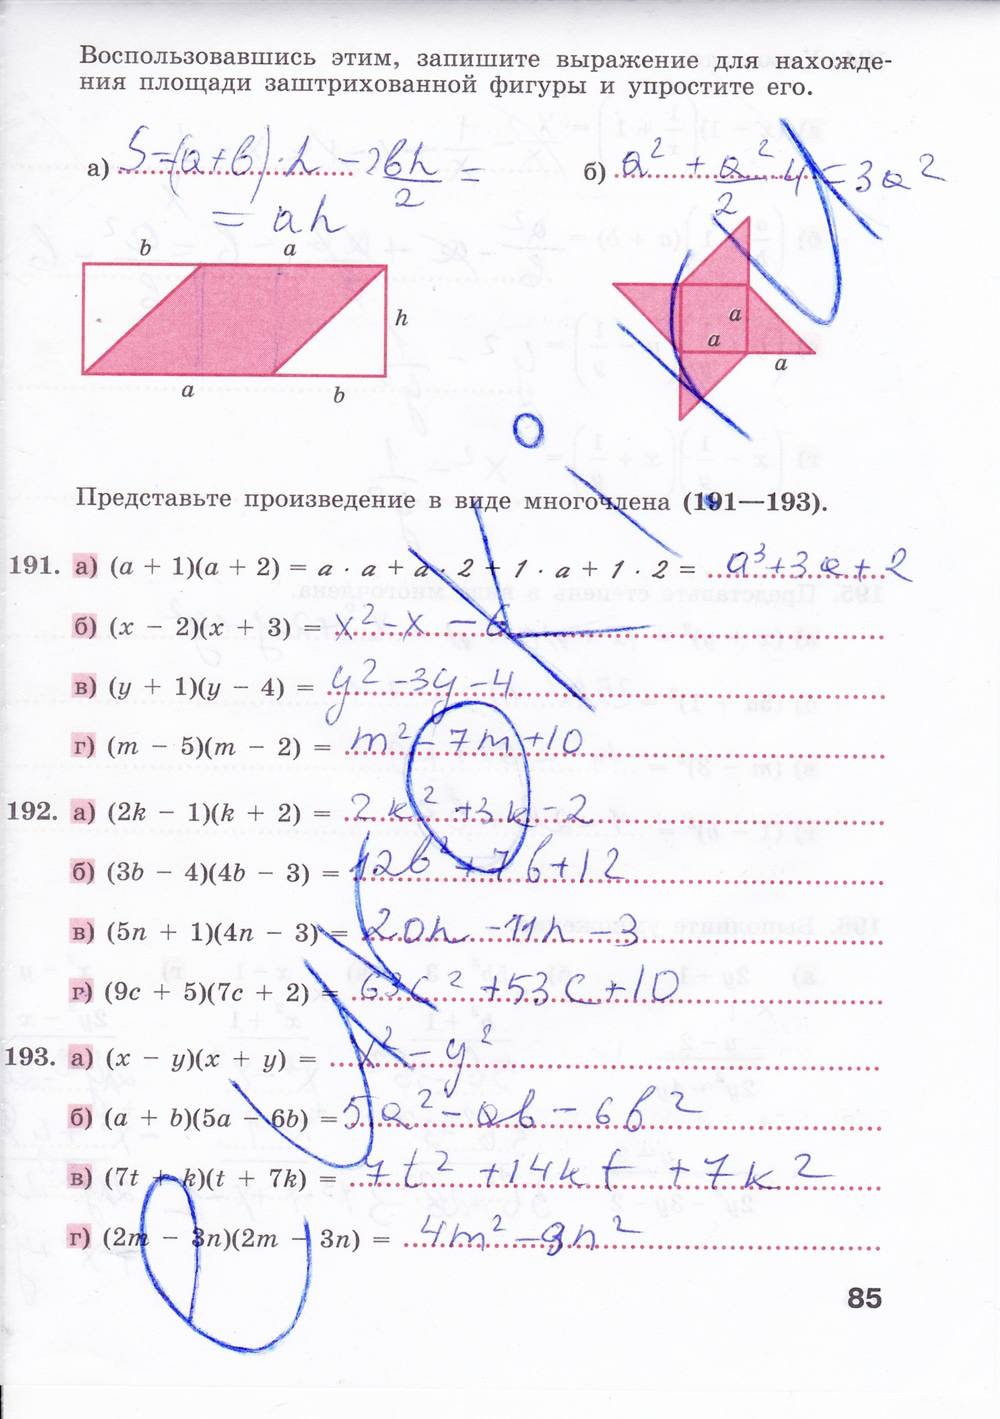 Воспользовавшись этим, запишите выражение для нахожде-
ния площади заштрихованной фигуры и упростите его.
а) S=(a+b)·h - 2bh/2 =
= ah
б) a² + a²/2 · 4 = 3a²
b a
h
a b
a
a
a
Представьте произведение в виде многочлена (191—193).
191. а) (a + 1)(a + 2) = a · a + a · 2 + 1 · a + 1 · 2 = a³+3a+2
б) (x − 2)(x + 3) = x²-x-6
в) (y + 1)(y − 4) = y²-3y-4
г) (m − 5)(m − 2) = m²-7m+10
192. а) (2k − 1)(k + 2) = 2k²+3k-2
б) (3b − 4)(4b − 3) = 12b²+7b+12
в) (5n + 1)(4n − 3) = 20n-11n-3
г) (9c + 5)(7c + 2) = 63c²+53c+10
193. а) (x − y)(x + y) = x²-y²
б) (a + b)(5a − 6b) = 5a²-ab-6b²
в) (7t + k)(t + 7k) = 7t²+14kt+7k²
г) (2m − 3n)(2m − 3n) = 4m²-9n²
85